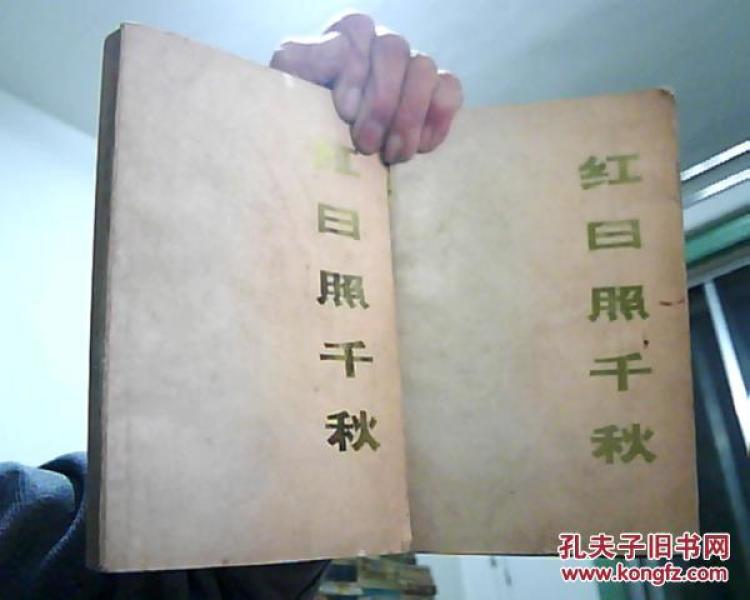 红日照千秋
红日照千秋
孔夫子旧书网
www.kongfz.com